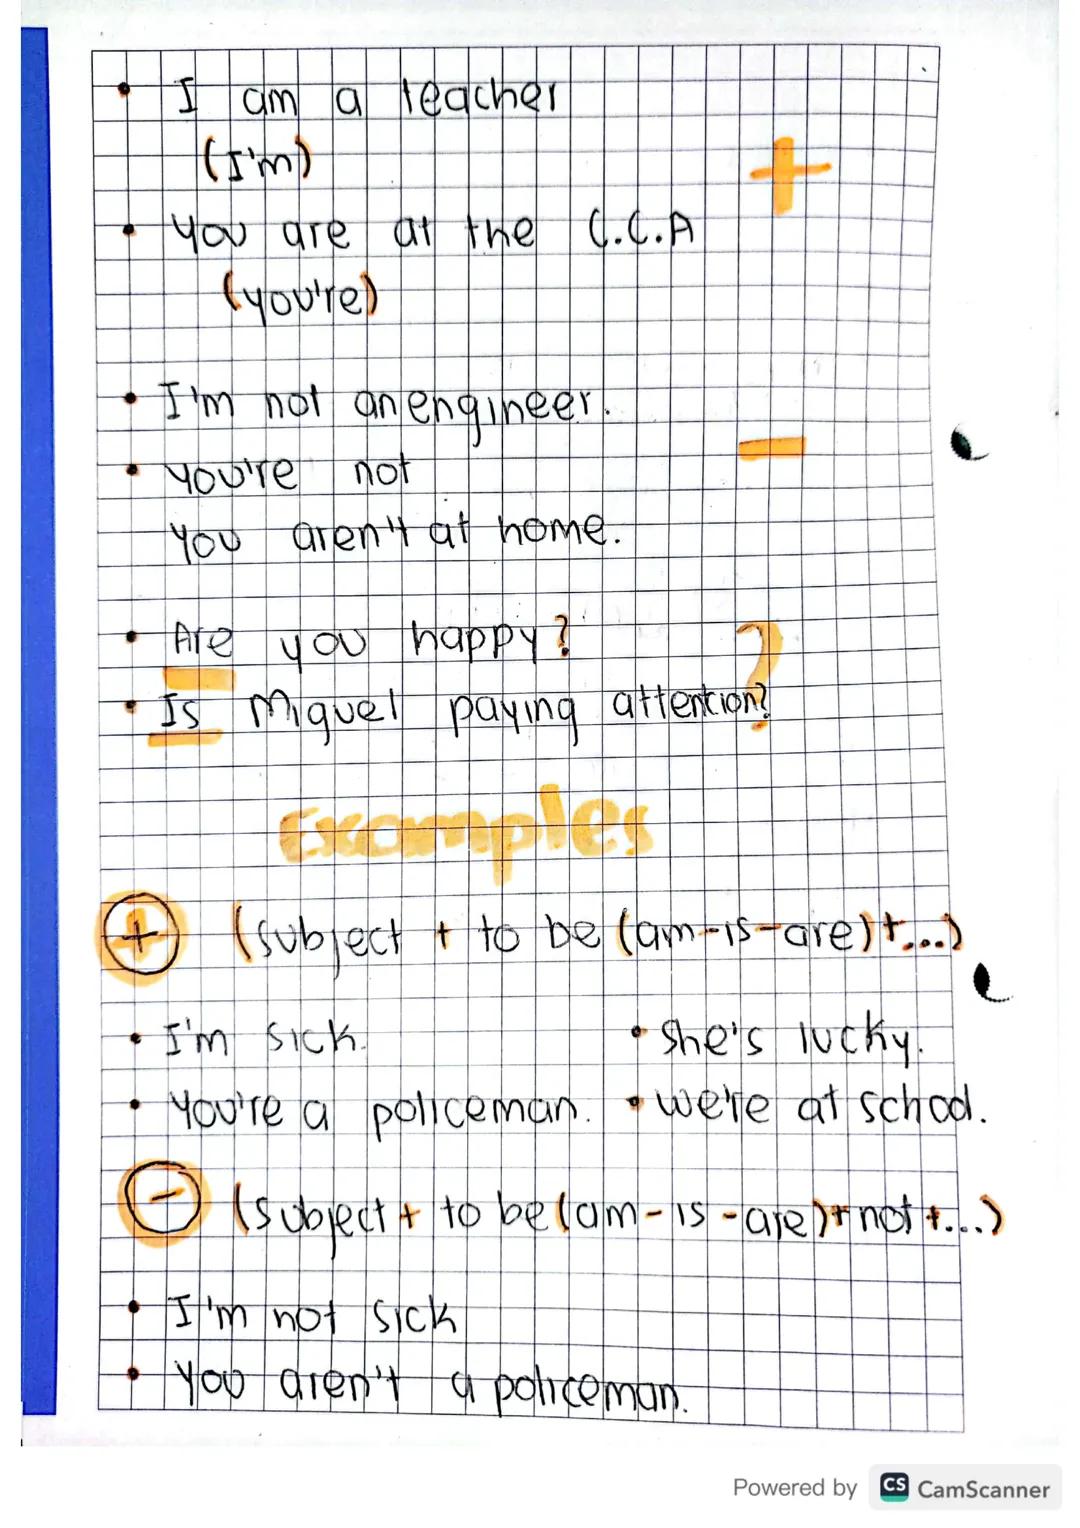 • I am a teacher
(I'm)
+
• You are at the C.C.A
(you're)
• I'm not an engineer.
-
• You're not
You aren't at home.
• Are you happy?
?
• Is Miguel paying attention?
Examples
+ (subject + to be (am-is-are)+...)
• I'm sick. • She's lucky.
• You're a policeman. • we're at school.
- (subject + to be (am-is-are)+ not +...)
• I'm not sick
• You aren't a policeman.
Powered by CS CamScanner